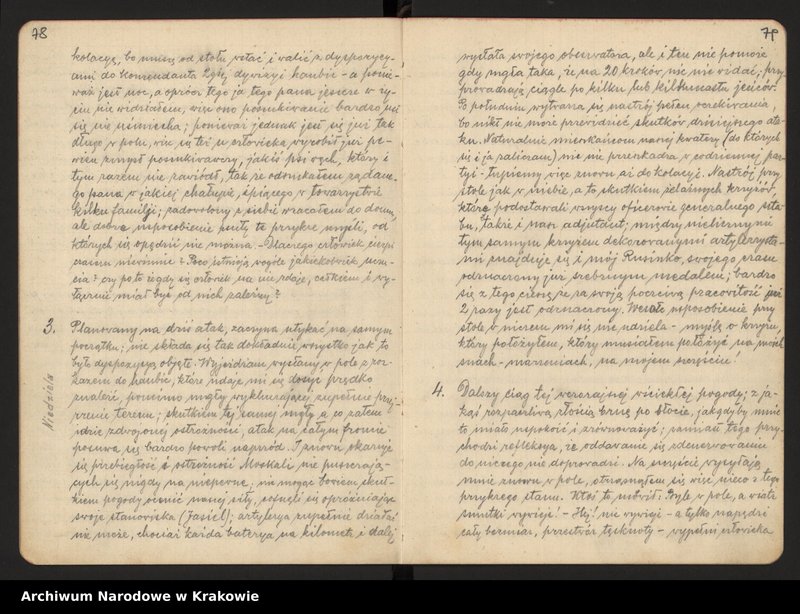 78
kolacyę, bo muszę od stołu wstać i walić z dyspozycy-
ami do komendanta 2giej dywizyi haubic - a ponie-
waż jest noc, a oprócz tego ja tego pana jeszcze w ży-
ciu nie widziałem, więc ono poszukiwanie bardzo mi
się nie uśmiecha; ponieważ jednak jest się już tak
długo w polu, więc się też u człowieka wyrobił już pe-
wien zmysł poszukiwawczy, jakiś psi węch, który i
tym razem nie zawiódł, tak że odszukałem żądane-
go pana w jakiejś chałupie, śpiącego w towarzystwie
kilku familji; zadowolony z siebie wracałem do domu,
ale dobre usposobienie psuły te przykre myśli, od
których się opędzić nie można. - Dlaczego człowiek cierpi
czasem niewinnie? Poco istnieją wogóle jakiekolwiek uczu-
cia? czy po to żeby się człowiek na nic zdał, całkiem i wy-
łącznie miał być od nich zależny?
3. Planowany na dziś atak, zaczyna utykać na samym
początku; nie składa się tak dokładnie wszystko jak to
było dyspozycyą objęte. Wyjeżdżam wysłany w pole z roz-
kazem do haubic, które udaje mi się dosyć prędko
znaleść, pomimo mgły wykluczającej zupełnie przej-
rzenie terenu; skutkiem tej samej mgły a co zatem
idzie zdwojonej ostrożności, atak na całym froncie
posuwa się bardzo powoli naprzód. I znowu okazuje
się przebiegłość i ostrożność Moskali nie puszczają-
cych się nigdy na niepewne; nie mogąc bowiem skut-
kiem pogody ocenić naszej siły, cofnęli się opróżniając
swoje stanowiska (Jasiel); artylerya zupełnie działać
nie może, chociaż każda baterya na kilometr i dalej
Niedziela
79
wysłała swojego obserwatora, ale i ten nie pomoże
gdy mgła taka, że na 20 kroków nic nie widać; przy-
prowadzają ciągle po kilku lub kilkunastu jeńców.
Po południu wytwarza się nastrój pełen oczekiwania,
bo nikt nie może przewidzieć skutków dzisiejszego ata-
ku. Naturalnie mieszkańcom naszej kwatery (do których
się i ja zaliczam) nic nie przeszkadza w codziennej par-
tyi - tniemy więc znowu aż do kolacyi. Nastrój przy
stole jak w niebie, a to skutkiem żelaznych krzyżów,
które podostawali wszyscy oficerowie generalnego szta-
bu, także i nasz adjutant; między nielicznymi
tym samym krzyżem dekorowanymi artylerzysta-
mi znajduje się i mój Rusinko, swojego czasu
odznaczony już srebrnym medalem; bardzo
się z tego cieszę, że za swoją poczciwą pracowitość już
2 razy jest odznaczony. Wesołe usposobienie przy
stole w niczem mi się nie udziela - myślę o krzyżu,
który położyłem, który musiałem położyć na moich
snach - marzeniach, na mojem szczęściu!
4. Dalszy ciąg tej wczorajszej wściekłej pogody; z ja-
kąś rozpaczliwą złością brnę po błocie, jakgdyby mnie
to miało uspokoić i zrównoważyć; zamiast tego przy-
chodzi refleksya, że oddawanie się zdenerwowaniu
do niczego nie doprowadzi. Na szczęście wysyłają
mnie znowu w pole, otrząsnąłem się więc nieco z tego
przykrego stanu. Ktoś to mówił: Byle w pole, a wiatr
smutki wywieje! - Hej! nie wywieje - a tylko napędzi
cały bezmiar, przestwór tęsknoty - wypełni człowieka
Archiwum Narodowe w Krakowie